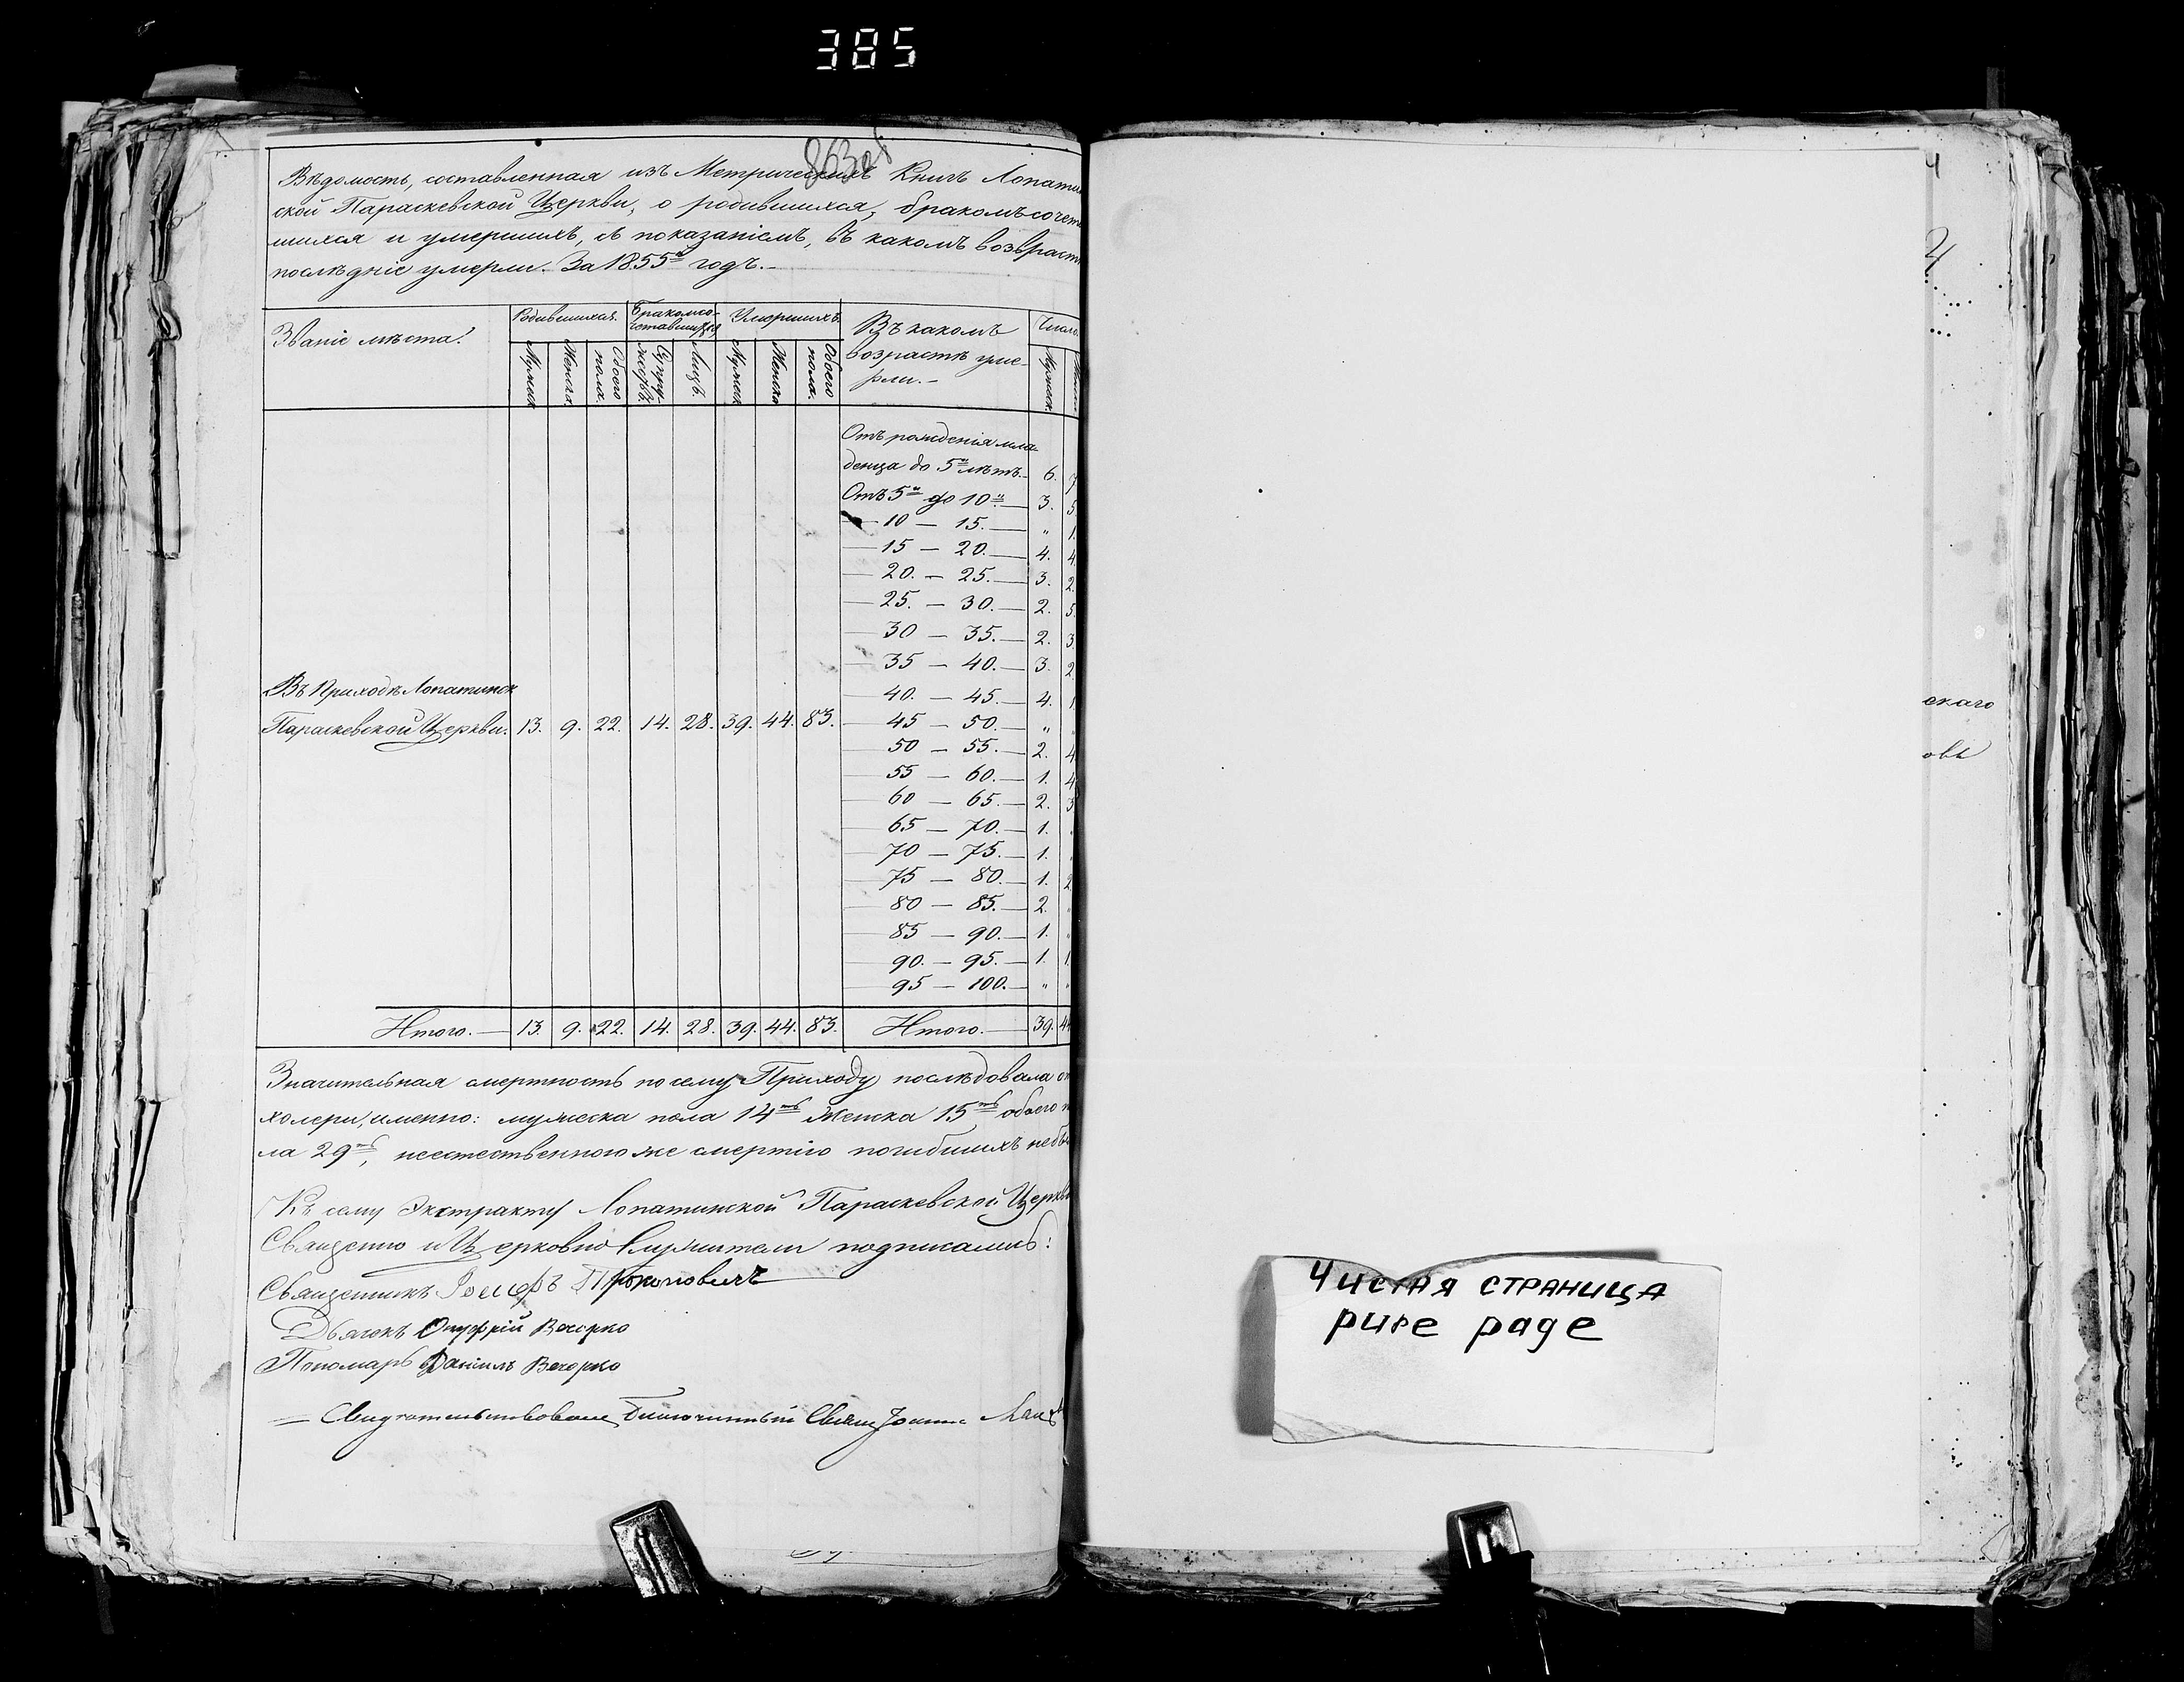 385
863об
Вѣдомость, составленная изъ Метрическихъ Книгъ Лопатин
ской Параскевской Церкви, о родившихся, бракомъ сочет
шихся и умершихъ, съ показаніемъ, въ какомъ возврасте
послѣдніе умерли. За 1855й годъ.
Званіе мѣста.
Родившихся. Бракомсо- Умершихъ.
четавшихся
Мужеск Женск. Обоего пола. Супру- жествъ. Лицъ. Мужеск Женска Обоего пола.
Въ какомъ
возрастѣ уме-
рли.-
Число.
Мужеск.
Отъ рожденія мла-
денца до 5и лѣтъ. 6. 7
Отъ 5и до 10и 3. 5.
— 10 — 15. — „ 1.
— 15 — 20. — 4. 4.
— 20. — 25. — 3. 2.
— 25. — 30. — 2. 5.
— 30 — 35. — 2. 3
— 35 — 40. — 3. 2
— 40. — 45. — 4. 1.
— 45 — 50. — „
— 50 — 55. — 2. 4
— 55 — 60. — 1. 4
— 60 — 65. — 2. 3
— 65 — 70. — 1.
— 70 — 75. — 1.
— 75 — 80. — 1. 2
— 80 — 85. — 2. „
— 85 — 90. — 1. „
— 90. — 95. — 1. 1.
— 95 — 100. — „ „
Въ Приходѣ Лопатинск
Параскевской Церкви. 13. 9. 22. 14. 28. 39. 44. 83.
Итого. — 13. 9. 22. 14. 28. 39. 44. 83. Итого. — 39. 44
Значительная смертность по сему Приходу послѣдовала от
холеры, именно: мужеска пола 14ть Женска 15ть обоего п
ла 29ть, неестественною же смертію погибшихъ небы
Къ сему Экстракту Лопатинской Параскевской Церкви
Священно и Церковно Служители подписались:
Священникъ Іосифъ Прокоповичъ
Дьячокъ Онуфрій Вечорко
Пономарь Даніилъ Вечорко
Свидѣтельствовалъ Благочинный Свящ Іоаннъ
4
4
скаго
овъ
Чистая страница
pure page